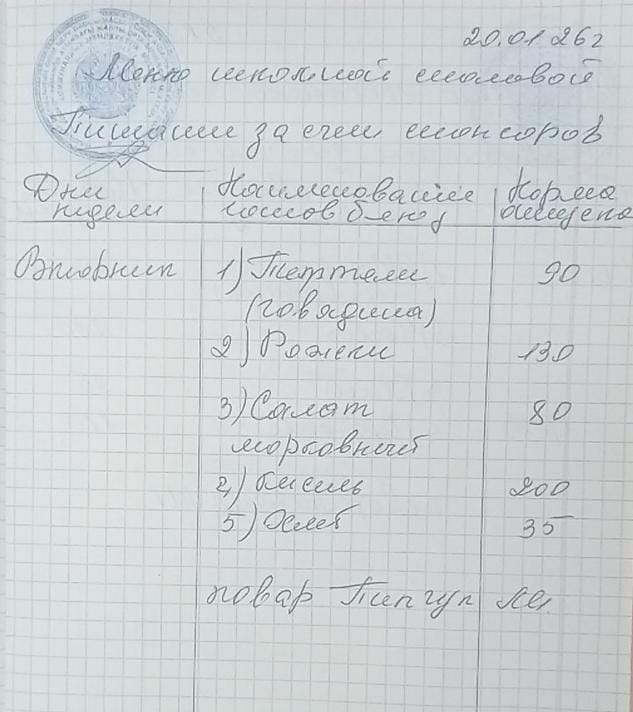 20.01.26г
Меню школьной столовой
Питание за счет спонсоров
Дни Наименование Норма
недели блюд
Вторник 1) Тефтели 90
(говядина)
2) Рожки 130
3) Салат 80
морковный
4) Кисель 200
5) Хлеб 35
повар